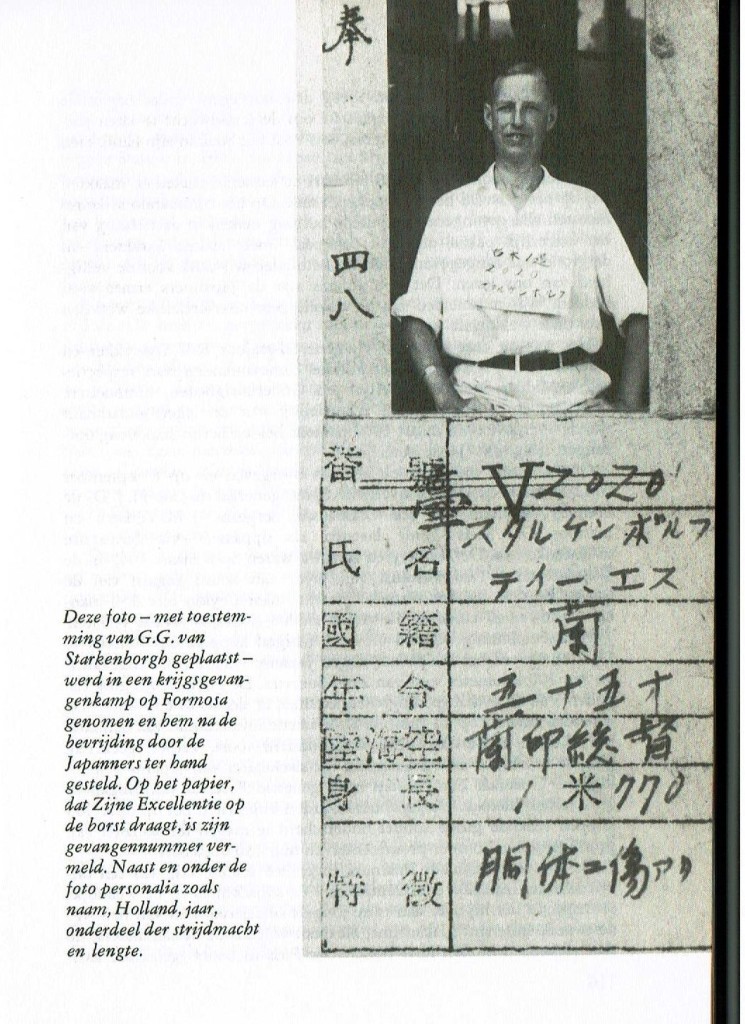 奉
四八
番號 臺V2020
氏名 スタルケンボルフ
テイー、エス
國籍 蘭
年令 五十五才
陸海空 蘭印総督
身長 1米770
特徴 胴体ニ傷アリ
2020
Deze foto – met toestem-
ming van G.G. van
Starkenborgh geplaatst –
werd in een krijgsgevan-
genkamp op Formosa
genomen en hem na de
bevrijding door de
Japanners ter hand
gesteld. Op het papier,
dat Zijne Excellentie op
de borst draagt, is zijn
gevangennummer ver-
meld. Naast en onder de
foto personalia zoals
naam, Holland, jaar,
onderdeel der strijdmacht
en lengte.